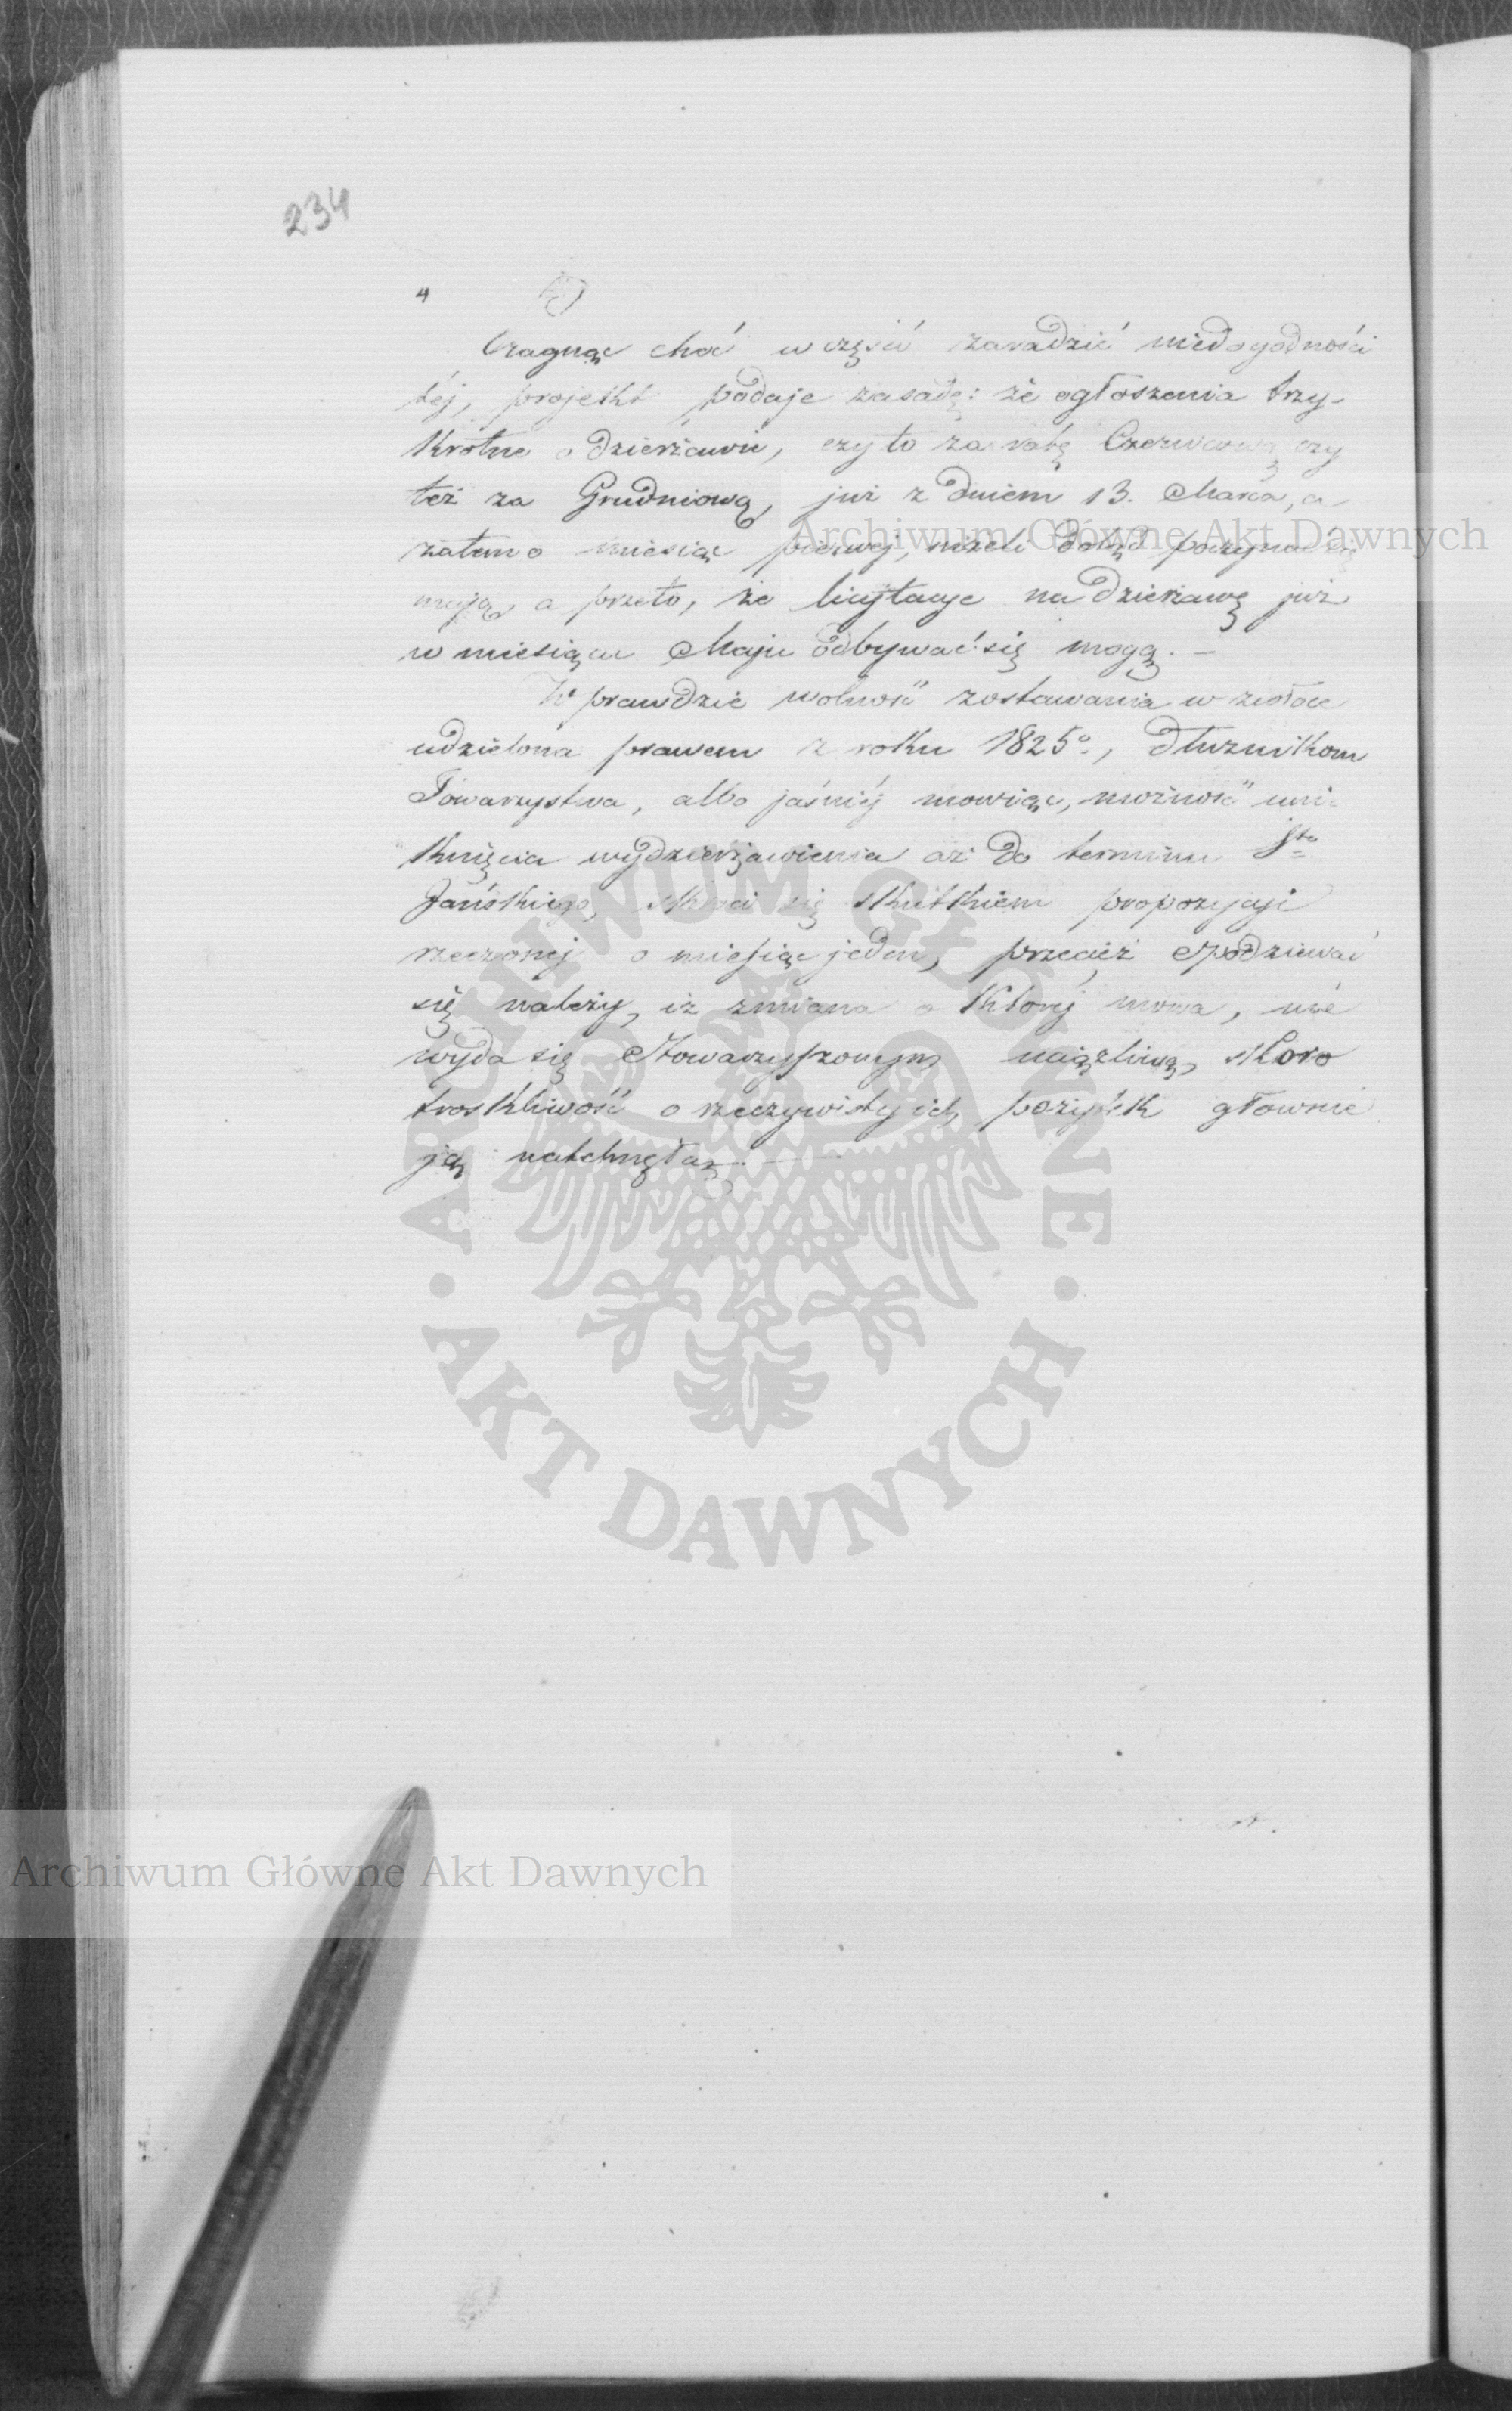 234
4
Pragnąc choć w części zaradzić niedogodności
téj, projekt podaje zasadę: że ogłoszenia trzy-
krotne o dzierżawie, czyto za ratę Czerwcową czy
też za Grudniową, już z dniem 13. Marca, a
zatem o miesiąc pierwéj, niżeli dotąd poczynać się
mają, a przeto, że licytacye na dzierżawę już
w miesiącu Maju odbywać się mogą. —
W prawdzie wolność zostawania w zwłoce
udzielona prawem z roku 1825º, dłużnikom
Towarzystwa, albo jaśniéj mowiąc, możność uni-
knięcia wydzierżawienia aż do terminu Sto
Jańskiego, skraca się skutkiem propozycyi
rzeczonéj o miesiąc jeden, przecież spodziewać
się należy, iż zmiana o któréj mowa, nie
wyda się Stowarzyszonym uciążliwą, skoro
troskliwość o rzeczywisty ich pożytek głownie
ją natchnęła.
Archiwum Główne Akt Dawnych
ARCHIWUM GŁÓWNE · AKT DAWNYCH ·
Archiwum Główne Akt Dawnych